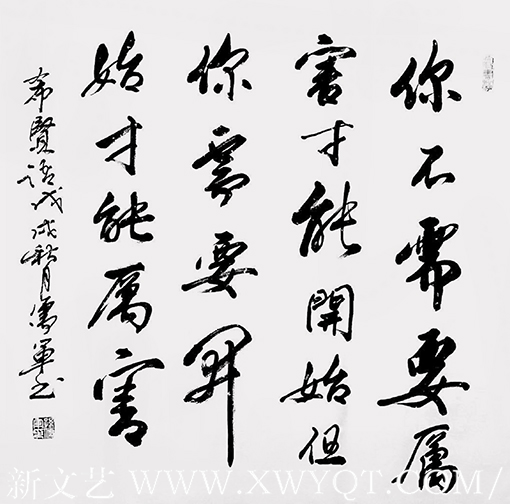 你不需要厲
害才能開始但
你需要開
始才能厲害
希賢語戊戌秋月儒軍书
新文艺 WWW.XWYQT.COM/